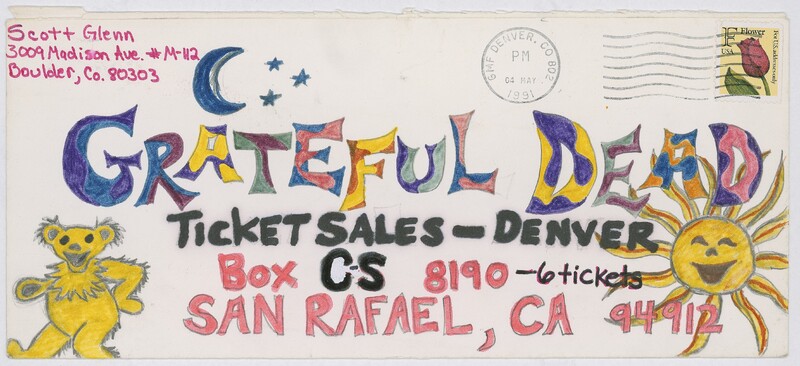 Scott Glenn
3009 Madison Ave. #M-112
Boulder, Co. 80303
GMF DENVER, CO 802
PM
04 MAY
1991
F Flower
USA
For U.S. addresses only
GRATEFUL DEAD
TICKET SALES — DENVER
BOX C-S 8190 – 6 tickets
SAN RAFAEL, CA 94912